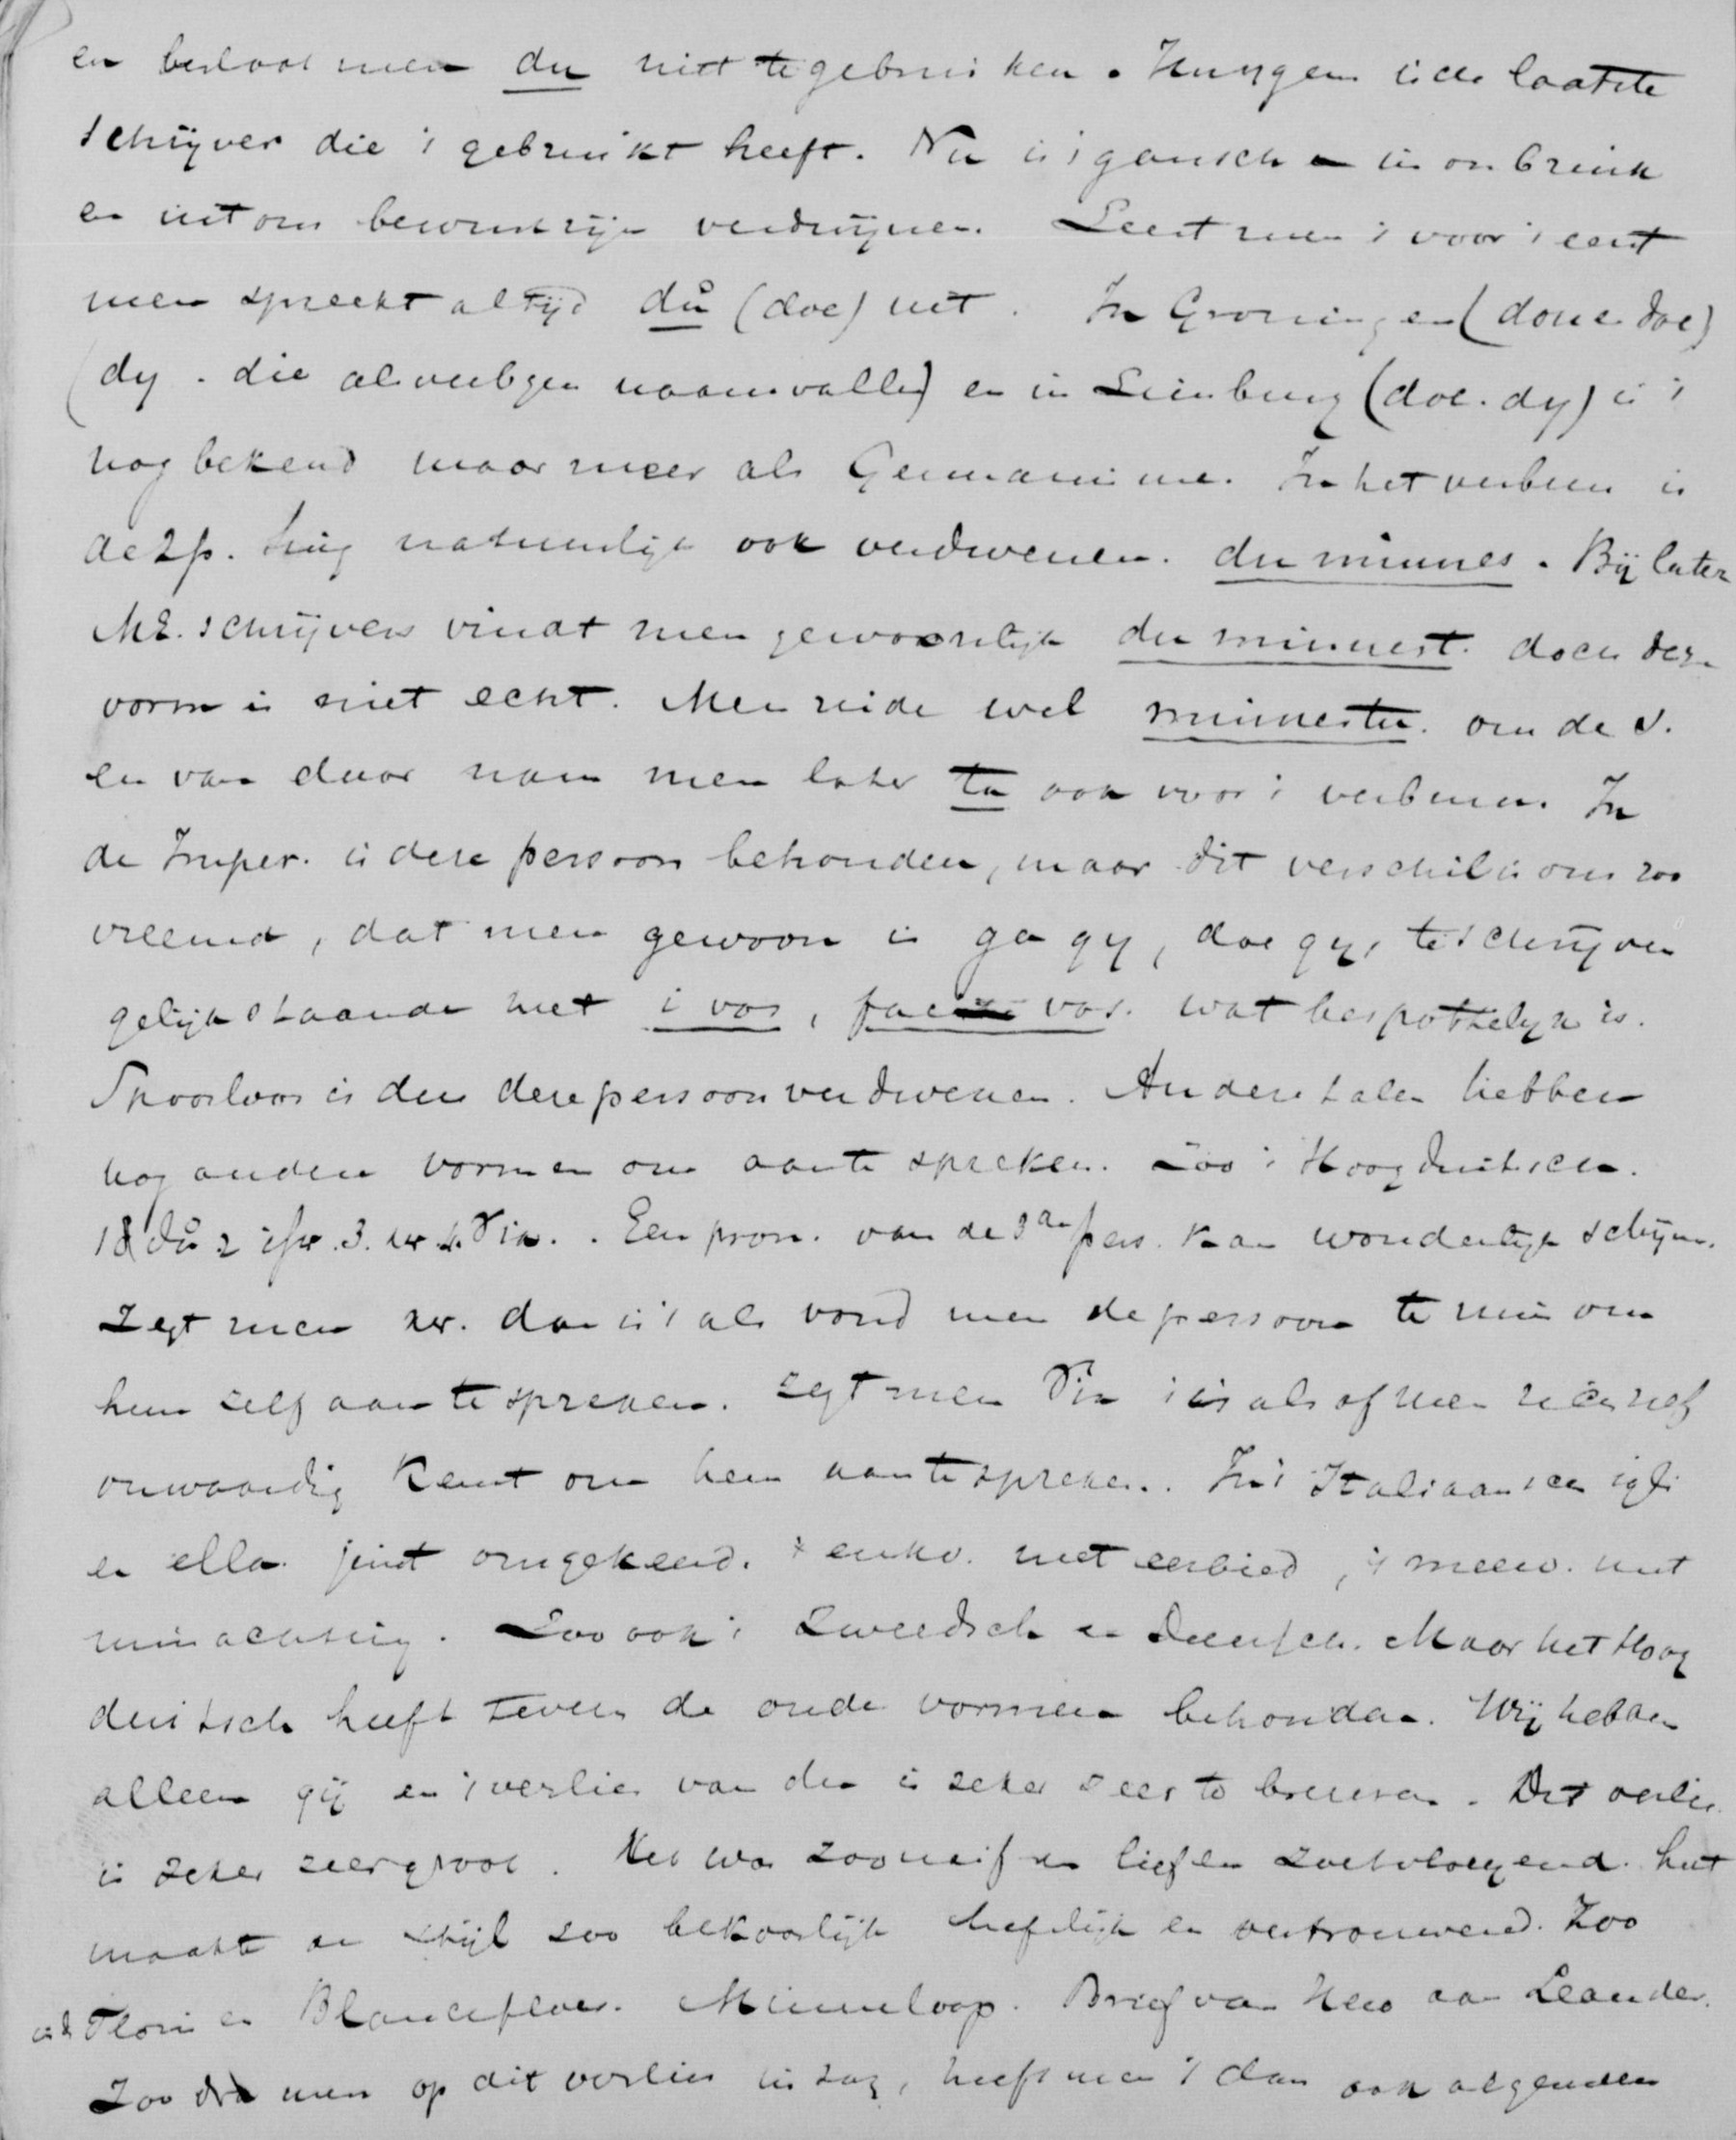 en besloot men du niet te gebruiken. Huygens is de laatste
schrijver die 't gebruikt heeft. Nu is 't gansch in onbruik
en uit ons bewustzijn verdwynen. Leest men 't voor 't eerst
men spreekt altijd dů (doe) uit. In Groningen (dou en doe)
(dy. die als verbogen naamvallen) en in Limburg (doe. dy) is 't
nog bekend maar meer als Germanisme. In het verbum is
de 2 p. sing natuurlijk ook verdwenen. du minnes. Bij later
ME. schrijvers vindt men gewoonlijk du minnest. doch deze
vorm is niet echt. Men zeide wel minnestu. om de s.
en van daar nam men later tu ook voor 't verbum. In
de Imper. is deze persoon behouden, maar dit verschil is ons zoo
vreemd, dat men gewoon is ga gy, doe gy, te schrijven
gelijkstaande met i vos, fac vos. wat bespottelyk is.
Spoorloos is dus deze persoon verdwenen. Andere talen hebben
nog andere vormen om aan te spreken. Zoo 't Hoogduitsch.
1 dů 2 ihr. 3. er. 4. Sie. Een pron. van de 3de pers. kan wonderlijk schijnen.
Zegt men er. dan is 't als vond men de persoon te min om
hem zelf aan te spreken. zegt men Sie 't is als of men zich zelf
onwaardig kent om hem aan te spreken. In 't Italiaansch egli
en ella juist omgekeerd. 't enkv. met eerbied, 't meerv. met
minachting. Zoo ook 't Zweedsch en Deensch. Maar het Hoog
duitsch heeft tevens de oude vormen behouden. Wij hebben
alleen gij en 't verlies van du is zeker zeer te betreuren. Dit verlies
is zeker zeer groot. Het was zoo naif en lief en zoetvloeyend. het
maakte den stijl zoo bekoorlijk liefelijk en vertrouwend. Zoo
in d Floris en Blancefloer. Minneloop. Brief van Hero aan Leander.
Zoodra men op dit verlies inzag, heeft men 't dan ook